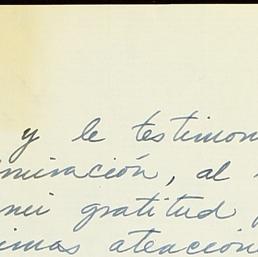 y le testimon
miración, al
mi gratitud
imas atencion